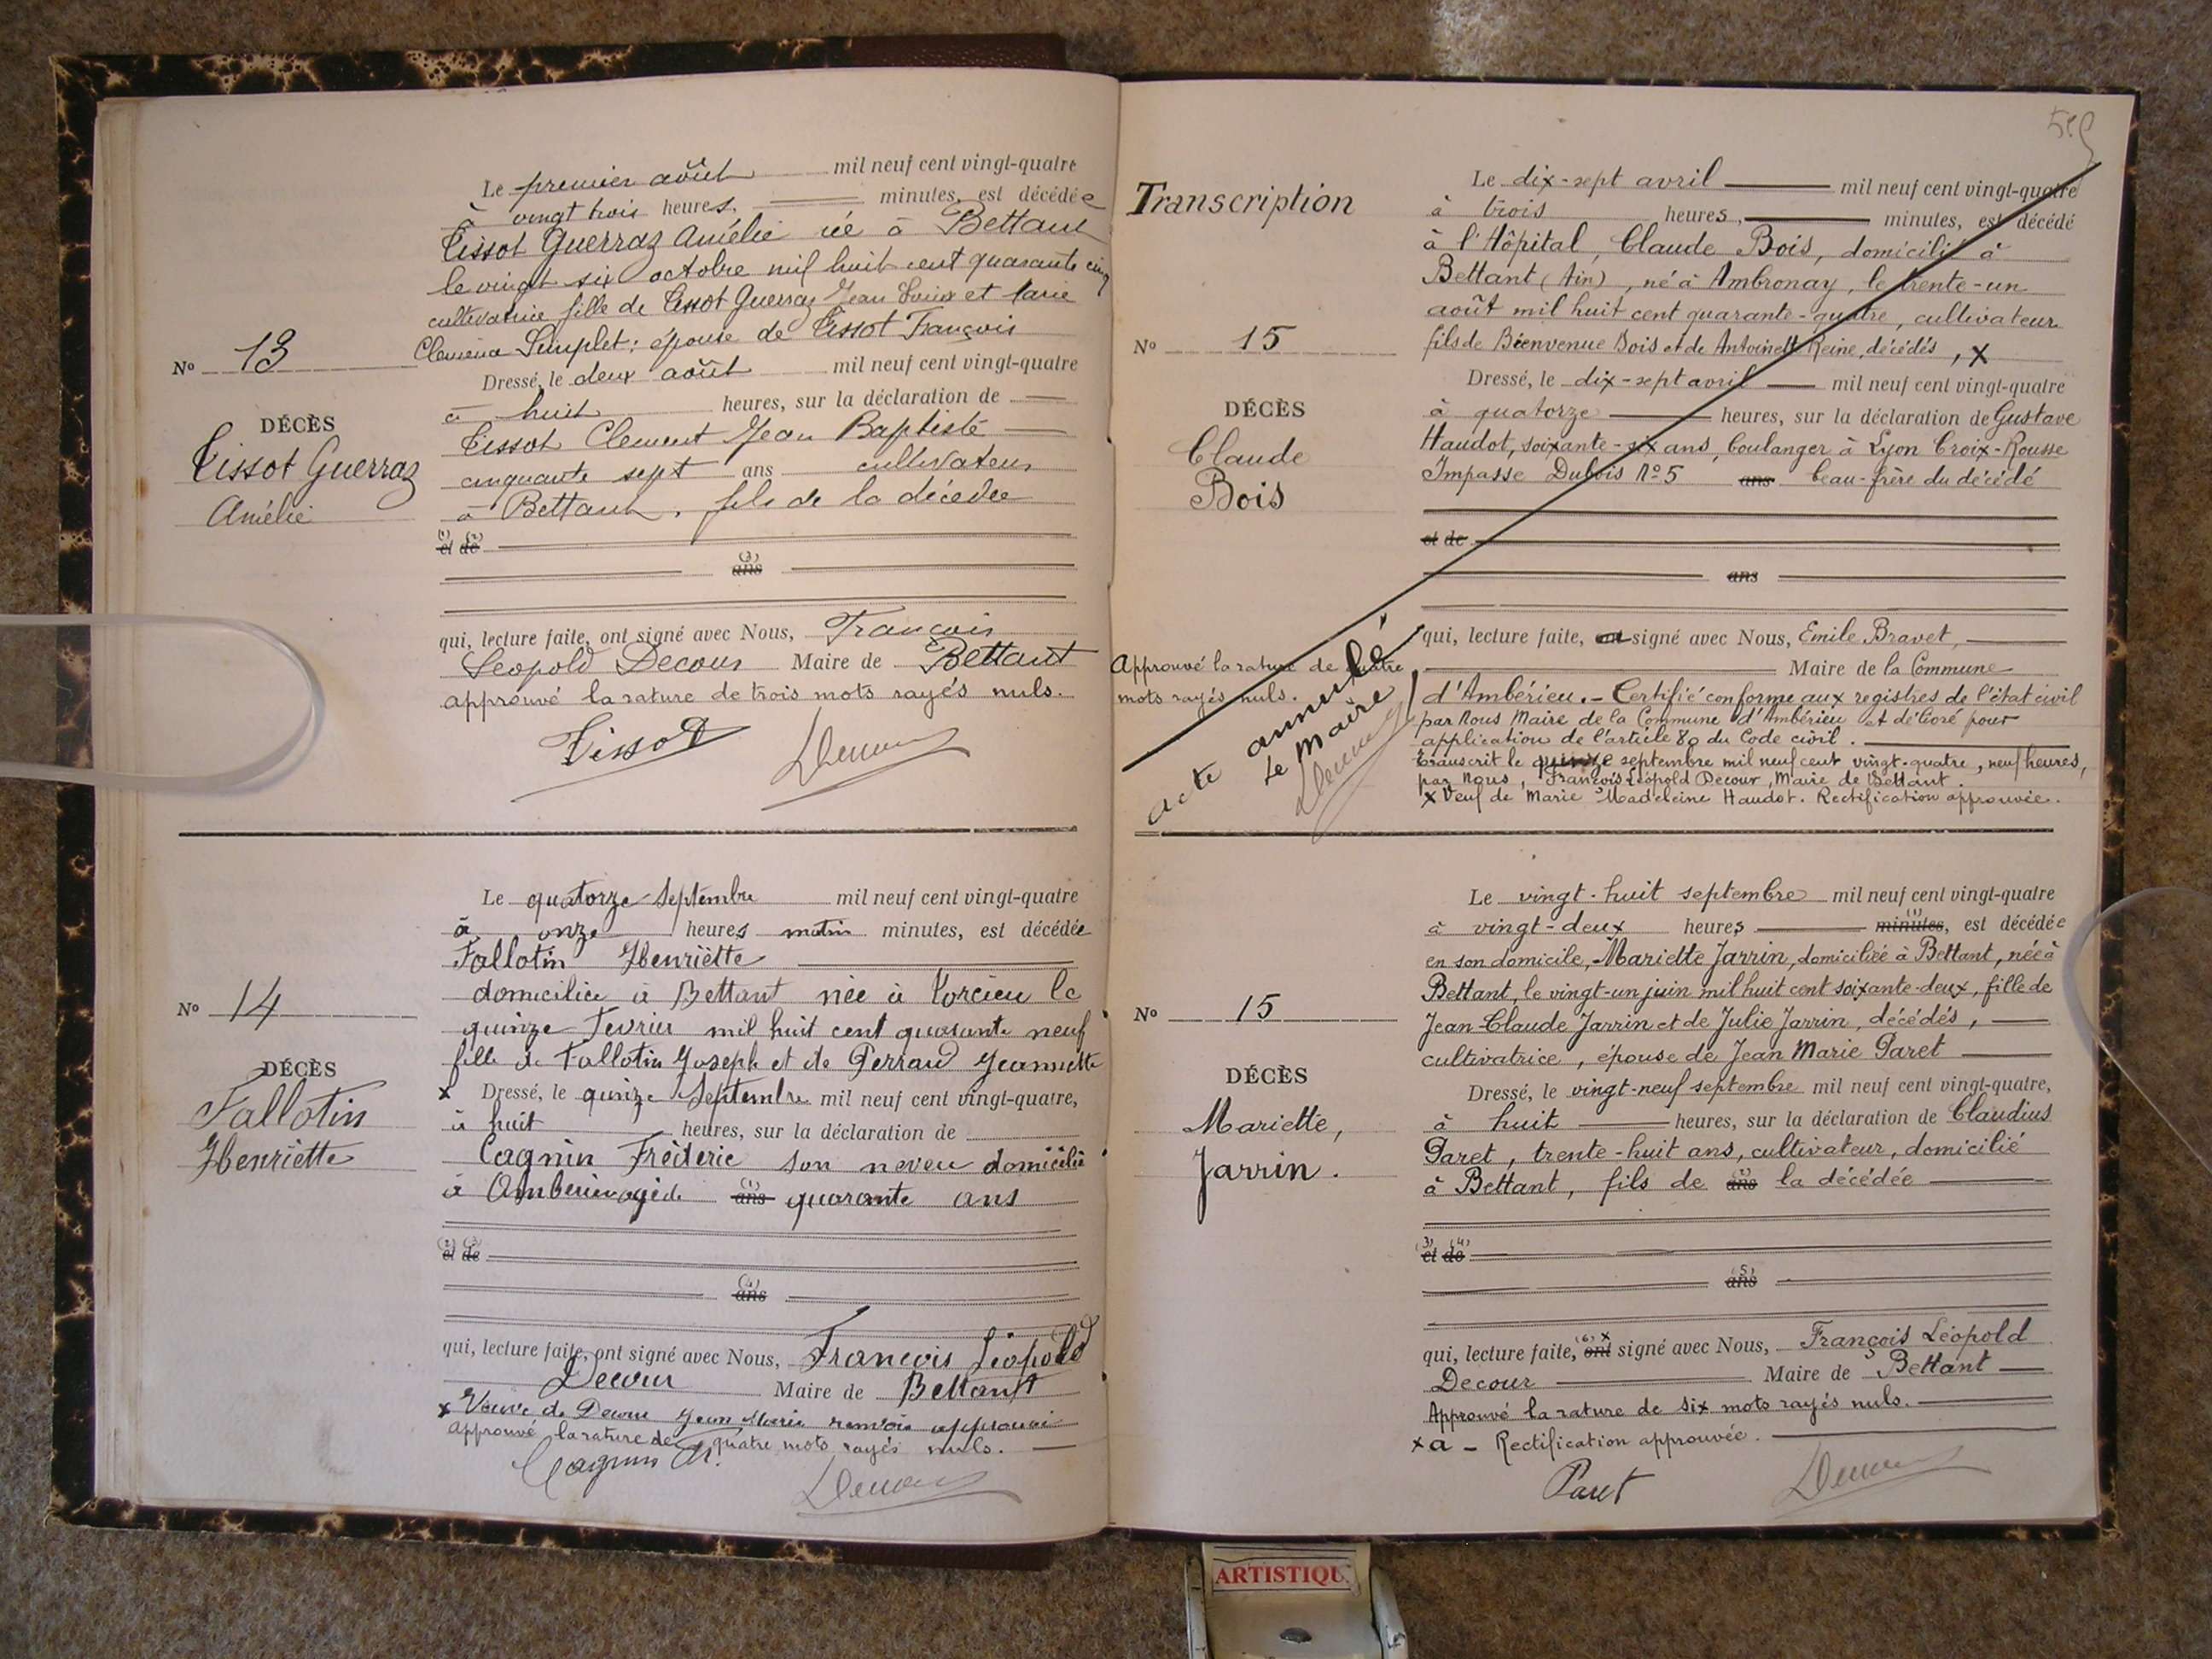 Le premier août mil neuf cent vingt-quatre
à vingt trois heures, minutes, est décédée
Tissot Guerraz Amélie née à Bettant
le vingt six octobre mil huit cent quarante cinq
cultivatrice fille de Tissot Guerraz Jean Louis et Marie
Clemena Simplet; épouse de Tissot François
No 13
Dressé, le deux août mil neuf cent vingt-quatre
à huit heures, sur la déclaration de
DÉCÈS
Tissot Guerraz
Amélie
Tissot Clement Jean Baptiste
cinquante sept ans cultivateur
à Bettant, fils de la décédée
(1) (2)
et de
(3)
ans
qui, lecture faite, ont signé avec Nous, François
Leopold Decour Maire de Bettant
approuvé la rature de trois mots rayés nuls.
Tissot Decour
Le quatorze Septembre mil neuf cent vingt-quatre
à onze heures matin minutes, est décédée
Fallotin Henriette
domiciliée à Bettant née à Torcieu le
quinze Fevrier mil huit cent quarante neuf
fille de Fallotin Joseph et de Perraud Jeannette
No 14
DÉCÈS
Fallotin
Henriette
x Dressé, le quinze Septembre mil neuf cent vingt-quatre,
à huit heures, sur la déclaration de
Cagnin Fréderic son neveu domicilié
à Ambérieu agé de (1) ans quarante ans
(2) (3)
et de
(4)
ans
qui, lecture faite, ont signé avec Nous, François Léopold
Decour Maire de Bettant
x Veuve de Decour Jean Marie renvoi approuvé
Approuvé la rature de quatre mots rayés nuls.
Cagnin Fr. Decour
Transcription
Le dix-sept avril mil neuf cent vingt-quatre
à trois heures, minutes, est décédé
à l'Hôpital, Claude Bois, domicilié à
Bettant (Ain), né à Ambronay, le trente-un
août mil huit cent quarante-quatre, cultivateur
fils de Bienvenue Bois et de Antoinette Reine, décédés, x
No 15
DÉCÈS
Claude
Bois
Dressé, le dix-sept avril mil neuf cent vingt-quatre
à quatorze heures, sur la déclaration de Gustave
Haudot, soixante-six ans, boulanger à Lyon Croix-Rousse
Impasse Dubois No 5 ans beau-frère du décédé
et de
ans
qui, lecture faite, ont signé avec Nous, Emile Bravet,
Maire de la Commune
d'Ambérieu. - Certifié conforme aux registres de l'état civil
par Nous Maire de la Commune d'Ambérieu et délivré pour
application de l'article 80 du Code civil.
Transcrit le quinze septembre mil neuf cent vingt-quatre, neuf heures,
par Nous, François Léopold Decour, Maire de Bettant.
x Veuf de Marie Madeleine Haudot. Rectification approuvée.
Approuvé la rature de quatre
mots rayés nuls.
Acte annulé
Le Maire
Decour
Le vingt-huit septembre mil neuf cent vingt-quatre
à vingt-deux heures (1) minutes, est décédée
en son domicile, Mariette Jarrin, domiciliée à Bettant, née à
Bettant, le vingt-un juin mil huit cent soixante-deux, fille de
Jean-Claude Jarrin et de Julie Jarrin, décédés,
cultivatrice, épouse de Jean Marie Paret
No 15
DÉCÈS
Mariette,
Jarrin.
Dressé, le vingt-neuf septembre mil neuf cent vingt-quatre,
à huit heures, sur la déclaration de Claudius
Paret, trente-huit ans, cultivateur, domicilié
à Bettant, fils de (2) ans la décédée
(3) (4)
et de
(5)
ans
qui, lecture faite, (6) x ont signé avec Nous, François Léopold
Decour Maire de Bettant
Approuvé la rature de six mots rayés nuls.
x a - Rectification approuvée.
Paret Decour
ARTISTIQU